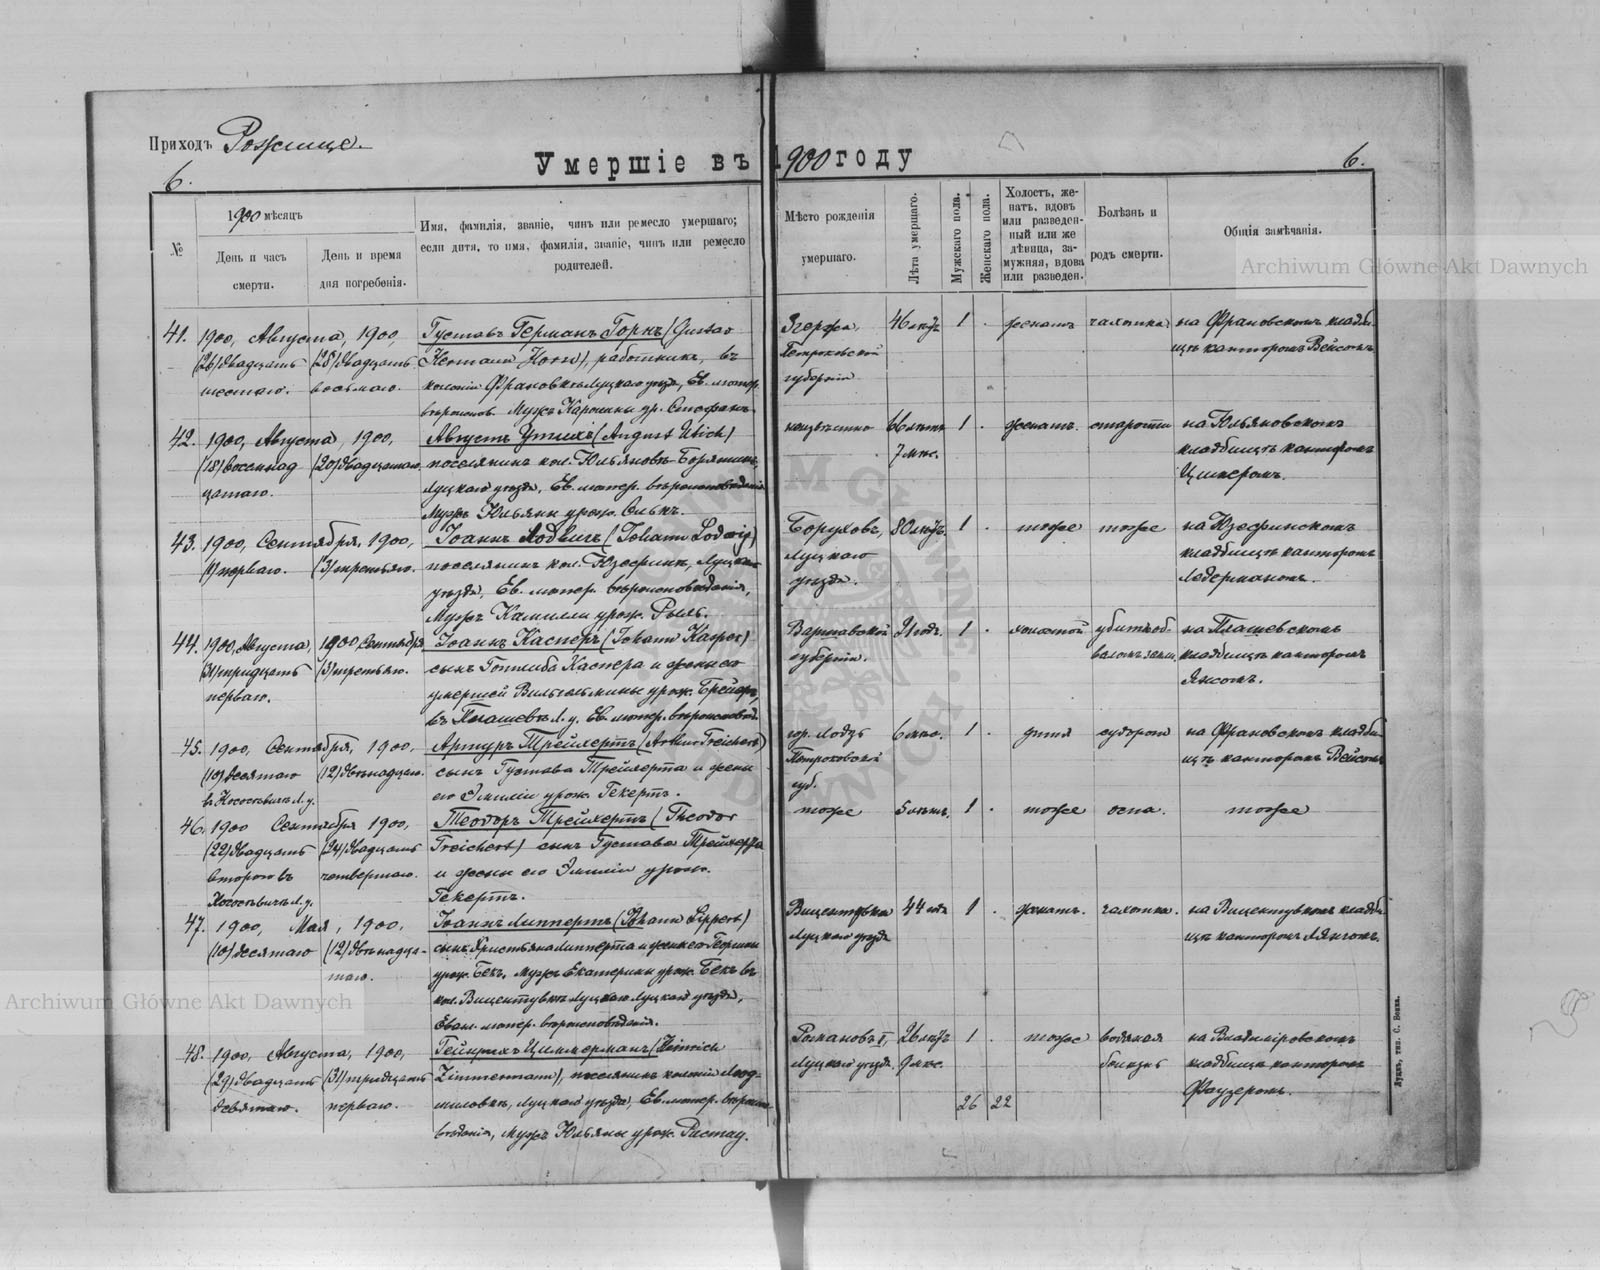 Приходъ Рожище.
Умершіе въ 1900 году
6.
6.
№
1900 мѣсяцъ
День и часъ смерти.
День и время дня погребенія.
Имя, фамилія, званіе, чинъ или ремесло умершаго;
если дитя, то имя, фамилія, званіе, чинъ или ремесло
родителей.
Мѣсто рожденія
умершаго.
Лѣта умершаго.
Мужскаго пола.
Женскаго пола.
Холостъ, же-
натъ, вдовъ
или разведен-
ный или же
дѣвица, за-
мужняя, вдова
или разведен.
Болѣзнь и
родъ смерти.
Общія замѣчанія.
41. 1900, Августа, 1900, Густавъ Германъ Горнъ (Gustav Згержа, 46 лѣтъ 1 . женатъ чахотка на Франовскомъ кладби-
(26) двадцать (28) двадцать Hermann Horn), работникъ, въ Петроковской щѣ канторомъ Вейсомъ
шестаго. восьмаго. колоніи Франовкѣ Луцкаго уѣзда, Ев. лютер. губерніи
вѣроисповѣд. Мужъ Каролины ур. Стефанъ.
42. 1900, Августа, 1900, Августъ Утихъ (August Utich) неизвѣстно 66 лѣтъ 1 . женатъ. старости на Юльяновскомъ
(18) восемнад (20) двадцатаго, поселянинъ кол. Юльяновъ-Борятинъ, 7 мѣс. кладбищѣ канторомъ
цатаго. Луцкаго уѣзда, Ев. лютер. вѣроисповѣданія Цимеромъ.
Мужъ Юльяны урож. Ольнъ.
43. 1900, Сентября, 1900, Іоаннъ Лодвигъ (Johann Lodwig) Боруховъ, 80 лѣтъ. 1 . тоже тоже на Юзефинскомъ
(1) перваго. (3) третьяго. поселянинъ кол. Юзефинъ, Луцкаго Луцкаго кладбищѣ канторомъ
уѣзда, Ев. лютер. вѣроисповѣданія, уѣзда. Ледерманомъ.
Мужъ Камилли урож. Рыль.
44. 1900, Августа, 1900, Сентября Іоаннъ Касперъ (Johann Kasper) Варшавской 21 годъ. 1 . холостой убитъ об- на Пташевскомъ
(31) тридцать (3) третьяго. сынъ Готлиба Каспера и жены его губерніи. валомъ земли, кладбищѣ канторомъ
перваго. умершей Вильгельмины урож. Янсомъ.
въ Пташевкѣ Л. у. Ев. лютер. вѣроисповѣд.
45. 1900, Сентября, 1900, Артуръ Трейхертъ (Arthur Treichert) гор. Лодзь 6 мѣс. 1 . дитя судороги на Франовскомъ кладби-
(10) десятаго (12) двѣнадцат. сынъ Густава Трейхерта и жены Петроковской щѣ канторомъ Вейсомъ
его Эмиліи урож. Гекертъ. губ.
46. 1900 Сентября 1900, Теодоръ Трейхертъ (Theodor тоже 5 лѣтъ. 1 . тоже оспа. тоже
(22) двадцать (24) двадцать Treichert) сынъ Густава Трейхерта
втораго въ четвертаго. и жены его Эмиліи урож.
Гекертъ.
47. 1900, Мая, 1900, Іоаннъ Липпертъ (Johann Lippert) Вицентувка 44 года 1 . женатъ. чахотка. на Вицентувкѣ кладби-
(10) десятаго (12) двѣнадца- сынъ Христьяна Липперта и жены его Луцкаго уѣзда щѣ канторомъ Лянгомъ.
таго. урож. Бекъ, Мужъ Екатерины урож. Бекъ въ
кол. Вицентувкѣ Луцкаго Луцкаго уѣзда,
Еван. лютер. вѣроисповѣданія.
48. 1900, Августа, 1900, Гейнрихъ Циммерманъ (Heinrich Романовъ I, 26 лѣтъ 1 . тоже водяная на Владимiровскомъ
(29) двадцать (31) тридцать Zimmermann), поселянинъ колоніи Люд- Луцкаго уѣзда. 9 мѣс. болѣзнь кладбищѣ канторомъ
девятаго. перваго. миловкѣ, Луцкаго уѣзда, Ев. лютер. вѣроиспо- Фаузеромъ.
вѣданія, Мужъ Юльяны урож. Ристау.
26 22
Луцкъ, тип. С. Бокка.
Archiwum Główne Akt Dawnych
Archiwum Główne Akt Dawnych